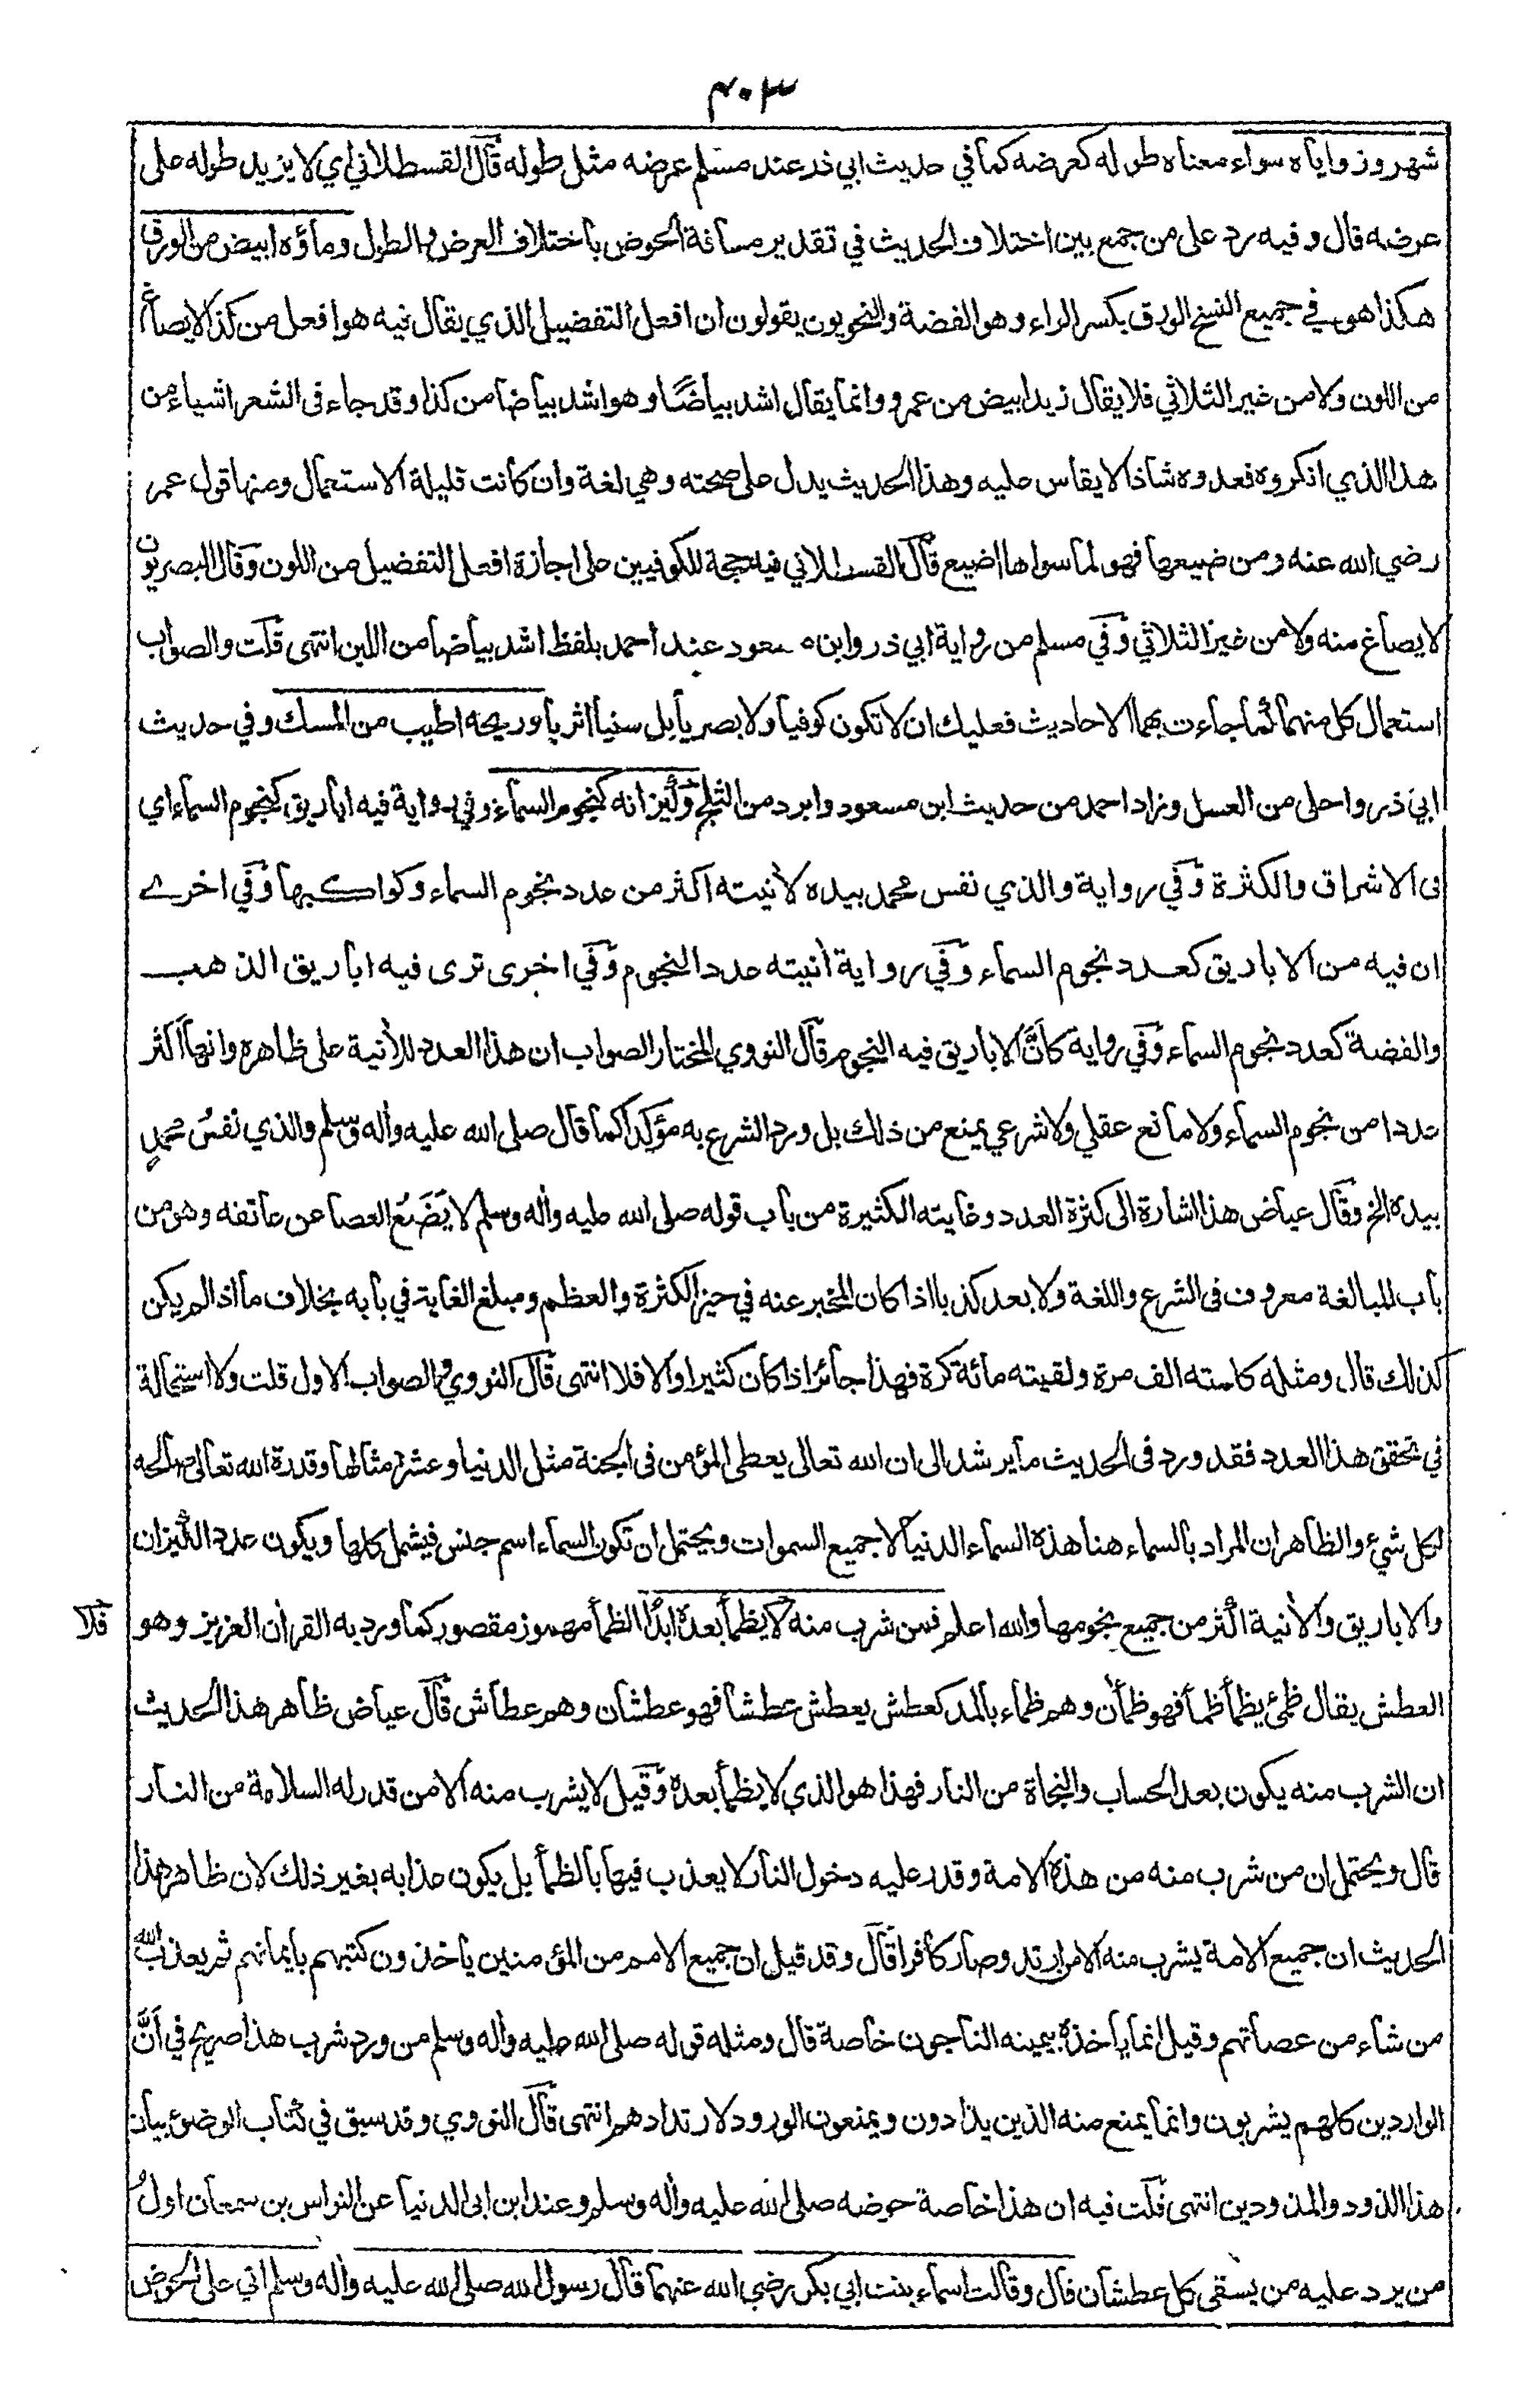 ٤٠٣
شهر وزواياه سواء معناه طوله كعرضه كما في حديث ابي ذر عند مسلم عرضه مثل طوله قال القسطلاني اي لا يزيد طوله على
عرضه قال وفيه رد على من جمع بين اختلاف الحديث في تقدير مسافة الحوض باختلاف العرض والطول وماؤه ابيض من الورق
هكذا هو في جميع النسخ الورق بكسر الراء وهو الفضة والنحويون يقولون ان افعل التفضيل الذي يقال فيه هو افعل من كذا لا يصاغ
من اللون ولا من غير الثلاثي فلا يقال زيد ابيض من عمرو وانما يقال اشد بياضًا وهو اشد بياضا من كذا وقد جاء فى الشعر اشياء من
هذا الذي انكروه فعدوه شاذا لا يقاس عليه وهذا الحديث يدل على صحته وهي لغة وان كانت قليلة الاستعمال ومنها قول عمر
رضي الله عنه ومن ضيعها فهو لما سواها اضيع قال القسطلاني فيه حجة للكوفيين على اجازة افعل التفضيل من اللون وقال البصريون
لا يصاغ منه ولا من غير الثلاثي وفي مسلم من رواية ابي ذر وابن مسعود عند احمد بلفظ اشد بياضا من اللبن انتهى قلت والصواب
استعمال كل منهما لما جاءت بهما الاحاديث فعليك ان لا تكون كوفيا ولا بصريا بل سنيا اثريا وريحه اطيب من المسك وفي حديث
ابي ذر واحلى من العسل وزاد احمد من حديث ابن مسعود وابرد من الثلج وكيزانه كنجوم السماء وفي رواية فيه اباريق كنجوم السماء اي
فى الاشراق والكثرة وفي رواية والذي نفس محمد بيده لأنيته اكثر من عدد نجوم السماء وكواكبها وفي اخرى
ان فيه من الاباريق كعدد نجوم السماء وفي رواية أنيته عدد النجوم وفي اخرى ترى فيه اباريق الذهب
والفضة كعدد نجوم السماء وفي رواية كأنَّ الاباريق فيه النجوم قال النووي المختار الصواب ان هذا العدد للأنية على ظاهره وانها اكثر
عددا من نجوم السماء ولا مانع عقلي ولا شرعي يمنع من ذلك بل ورد الشرع به مؤكدا كما قال صلى الله عليه وأله وسلم والذي نفسُ محمدٍ
بيده الخ وقال عياض هذا اشارة الى كثرة العدد وغايته الكثيرة من باب قوله صلى الله عليه وأله وسلم لا يَضَعُ العصا عن عاتقه وهو من
باب المبالغة معروف فى الشرع واللغة ولا يعد كذبا اذا كان المخبر عنه في حيز الكثرة والعظم ومبلغ الغاية في بابه بخلاف ما اذا لم يكن
كذلك قال ومثله كلمته الف مرة ولقيته مائة كرة فهذا جائز اذا كان كثيرا والا فلا انتهى قال النووي والصواب الاول قلت ولا استحالة
في تحقق هذا العدد فقد ورد فى الحديث ما يرشد الى ان الله تعالى يعطى المؤمن فى الجنة مثل الدنيا وعشر مثالها وقدرة الله تعالى صالحة
لكل شيء والظاهر ان المراد بالسماء هنا هذه السماء الدنيا لا جميع السموات ويحتمل ان تكون السماء اسم جنس فيشمل كلها ويكون عدد الكيزان
والاباريق والأنية اكثر من جميع نجومها والله اعلم فمن شرب منه لا يظمأ بعده ابدًا الظمأ مهموز مقصور كما ورد به القرأن العزيز وهو
فلا
العطش يقال ظمئ يظمأ ظمأ فهو ظمأن وهم ظماء بالمد كعطش يعطش عطشا فهو عطشان وهم عطاش قال عياض ظاهر هذا الحديث
ان الشرب منه يكون بعد الحساب والنجاة من النار فهذا هو الذي لا يظمأ بعده وقيل لا يشرب منه الا من قدر له السلامة من النار
قال ويحتمل ان من شرب منه من هذه الامة وقدر عليه دخول النار لا يعذب فيها بالظمأ بل يكون عذابه بغير ذلك لان ظاهر هذا
الحديث ان جميع الامة يشرب منه الا من ارتد وصار كافرا قال وقد قيل ان جميع الامم من المؤمنين ياخذون كتبهم بايمانهم ثم يعذب الله
من شاء من عصاتهم وقيل انما يأخذه بيمينه الناجون خاصة قال ومثله قوله صلى الله عليه وأله وسلم من ورد شرب هذا صريح في أنَّ
الواردين كلهم يشربون وانما يمنع منه الذين يذادون ويمنعون الورود لارتدادهم انتهى قال النووي وقد سبق في كتاب الوضوء بيان
هذا الذود والمذودين انتهى قلت فيه ان هذا خاصة حوضه صلى الله عليه وأله وسلم وعند ابن ابى الدنيا عن النواس بن سمعان اولُ
من يرد عليه من يسقى كل عطشان قال وقالت اسماء بنت ابي بكر رضي الله عنهما قال رسول الله صلى الله عليه وأله وسلم اني على الحوض